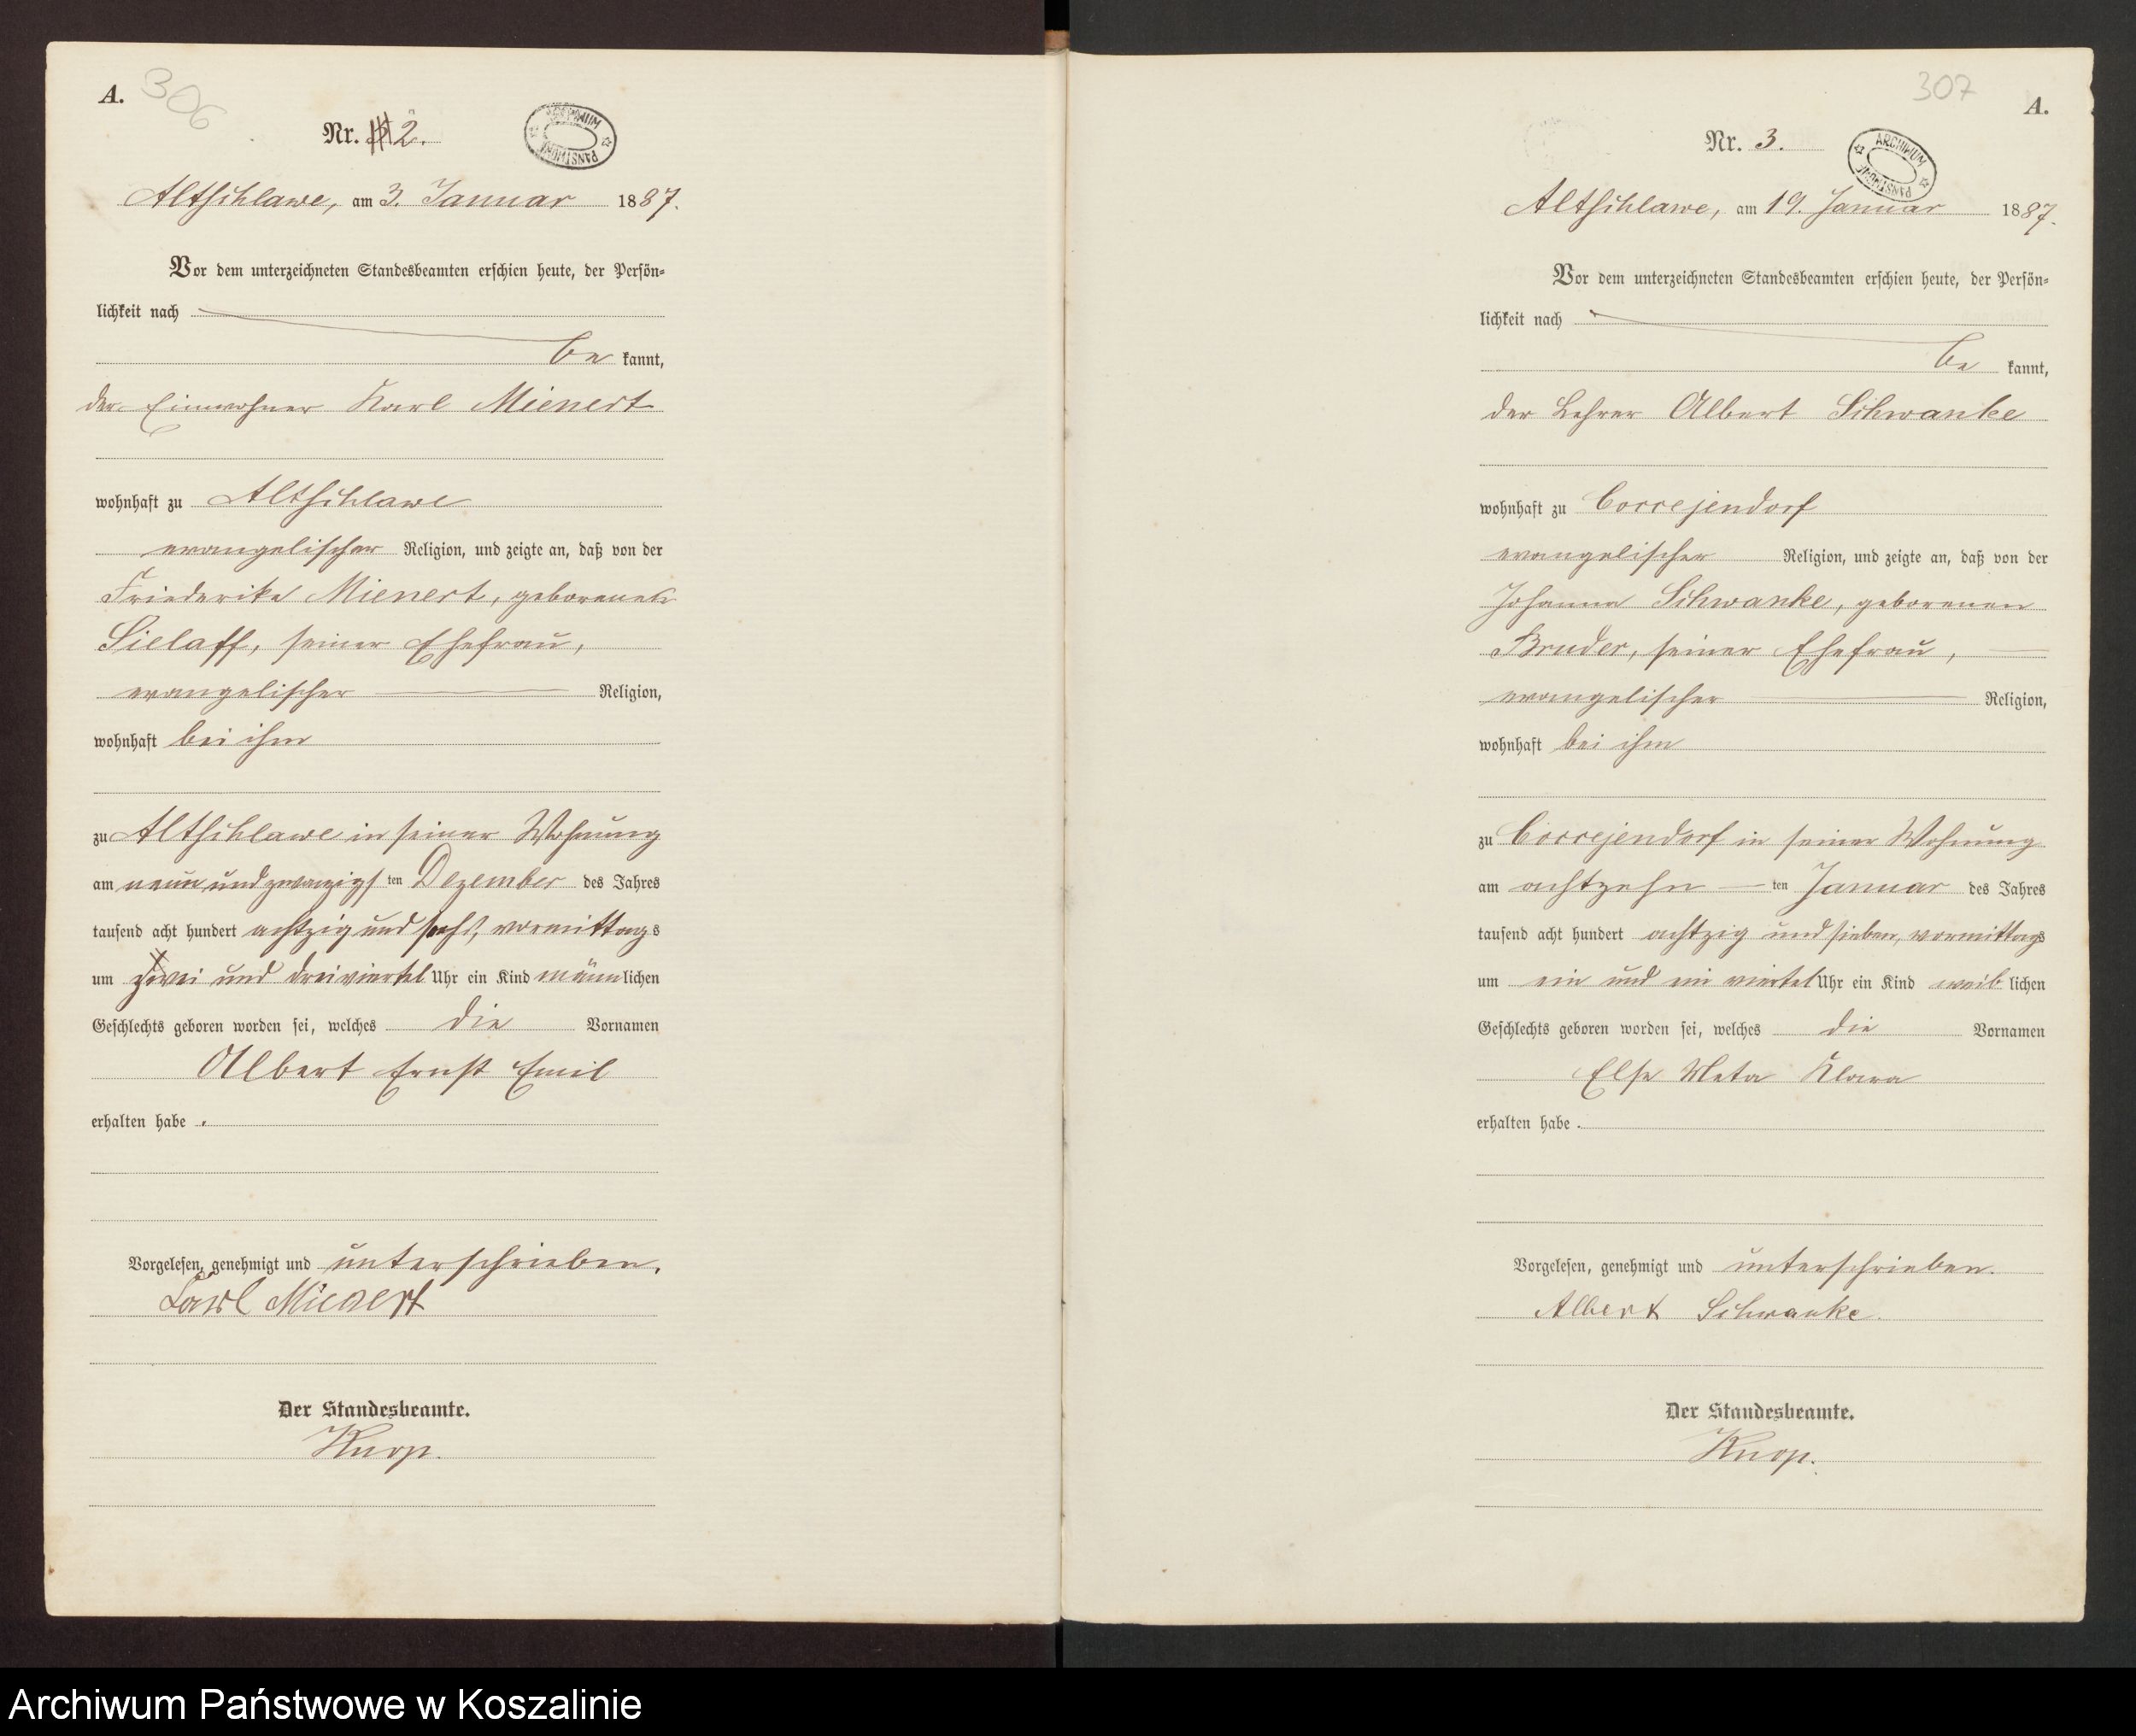 A.
306
Nr. 2.
ARCHIWUM PAŃSTWOWE
Altschlawe, am 3. Januar 1887.
Vor dem unterzeichneten Standesbeamten erschien heute, der Persön-
lichkeit nach
be kannt,
der Einwohner Karl Mienert
wohnhaft zu Altschlawe
evangelischer Religion, und zeigte an, daß von der
Friederike Mienert, geborenen
Sielaff, seiner Ehefrau,
evangelischer Religion,
wohnhaft bei ihm
zu Altschlawe in seiner Wohnung
am neun und zwanzigs ten Dezember des Jahres
tausend acht hundert achtzig und sechs, vormittags
um zwei und dreiviertel Uhr ein Kind männlichen
Geschlechts geboren worden sei, welches die Vornamen
Albert Ernst Emil
erhalten habe.
Vorgelesen, genehmigt und unterschrieben.
Karl Mienert
Der Standesbeamte.
Knop.
307
A.
Nr. 3.
ARCHIWUM PAŃSTWOWE
Altschlawe, am 19. Januar 1887.
Vor dem unterzeichneten Standesbeamten erschien heute, der Persön-
lichkeit nach
be kannt,
der Lehrer Albert Schwanke
wohnhaft zu Coccejendorf
evangelischer Religion, und zeigte an, daß von der
Johanna Schwanke, geborenen
Bruder, seiner Ehefrau,
evangelischer Religion,
wohnhaft bei ihm
zu Coccejendorf in seiner Wohnung
am achtzehn ten Januar des Jahres
tausend acht hundert achtzig und sieben, vormittags
um ein und ein viertel Uhr ein Kind weib lichen
Geschlechts geboren worden sei, welches die Vornamen
Else Meta Klara
erhalten habe.
Vorgelesen, genehmigt und unterschrieben.
Albert Schwanke.
Der Standesbeamte.
Knop.
Archiwum Państwowe w Koszalinie